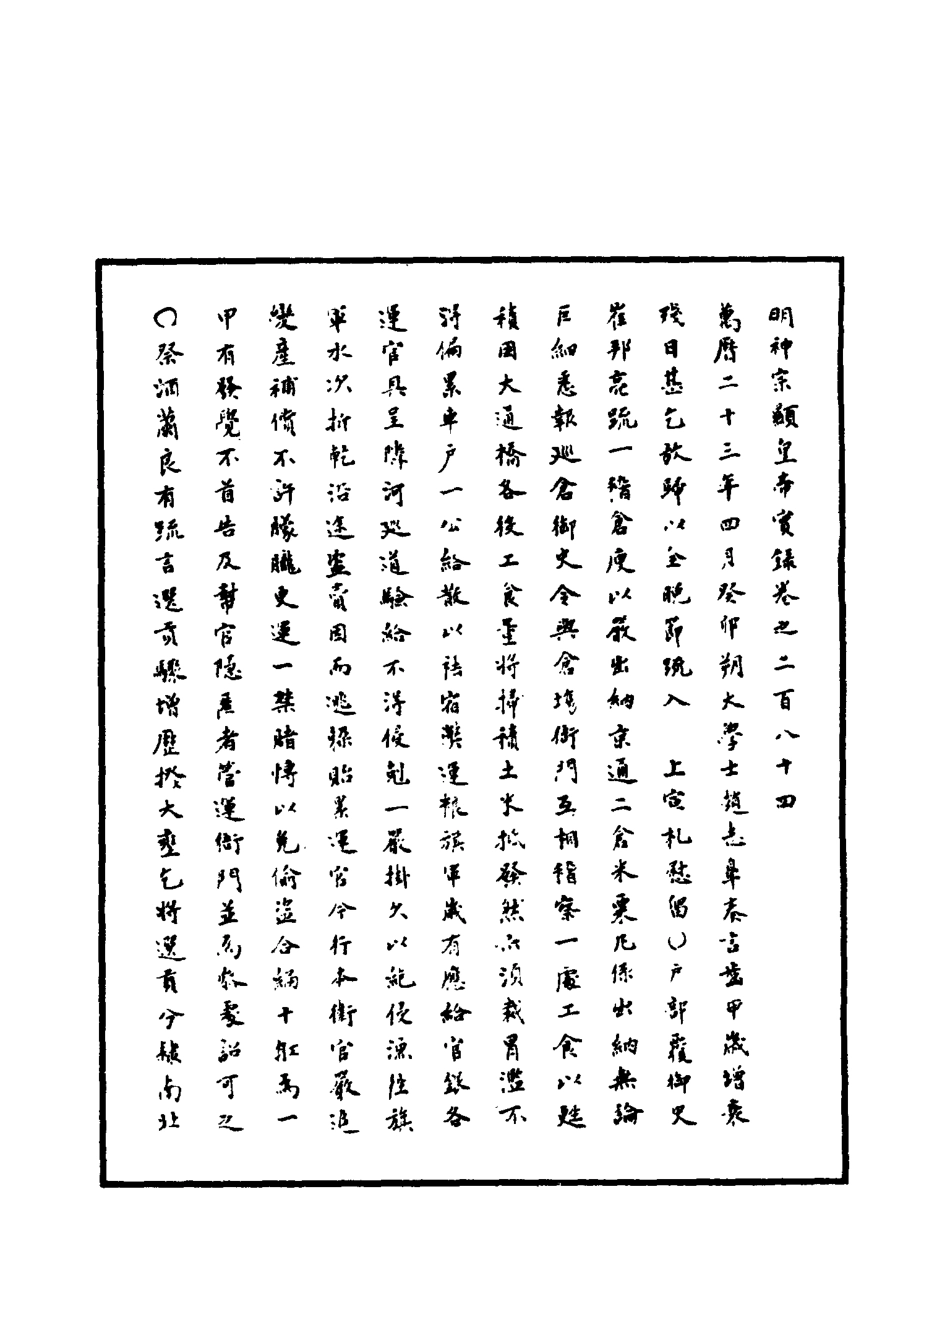 明神宗顯皇帝實錄卷之二百八十四
萬曆二十三年四月癸卯朔大學士趙志皋奏言齒甲歲增衰
殘日甚乞放歸以全晚節疏入　上宣札慰留○戶部覆御史
崔邦亮疏一稽倉庾以嚴出納京通二倉米粟凡係出納無論
巨細悉報廵倉御史令與倉塲衙門互相稽察一處工食以甦
積困大通橋各役工食量將掃積土米抵發然亦須裁冒濫不
得偏累車戶一公給散以祛宿獘運粮旗軍歲有應給官銀各
運官具呈隣河廵道驗給不得侵剋一嚴掛欠以絕侵漁徃旗
軍水次折乾沿途盜賣因而逃躱貽累運官今行本衛官嚴追
變產補償不許朦朧更運一禁賭愽以免偷盜合綑十舡為一
甲有發覺不首告及幫官隱匿者營運衙門並為叅處詔可之
○祭酒蕭良有疏言選貢驟增歷撥大壅乞將選貢分肄南北